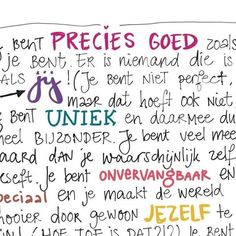 Je BENT PRECIES GOED zoals
je BENT. ER is niemand die is
ALS jij! (Je BENT NIET perfect,
maar dat hoeft ook niet
Je BENT UNIEK en daarmee du
heel BIJZONDER. Je bent veel mee
aard dan je waarschijnlijk zelf
beseft. Je bent ONVERVANGBAAR en
speciaal en je maakt de wereld
mooier door gewoon JEZELF te
(HOE TOF IS DAT?!?) Je BENT